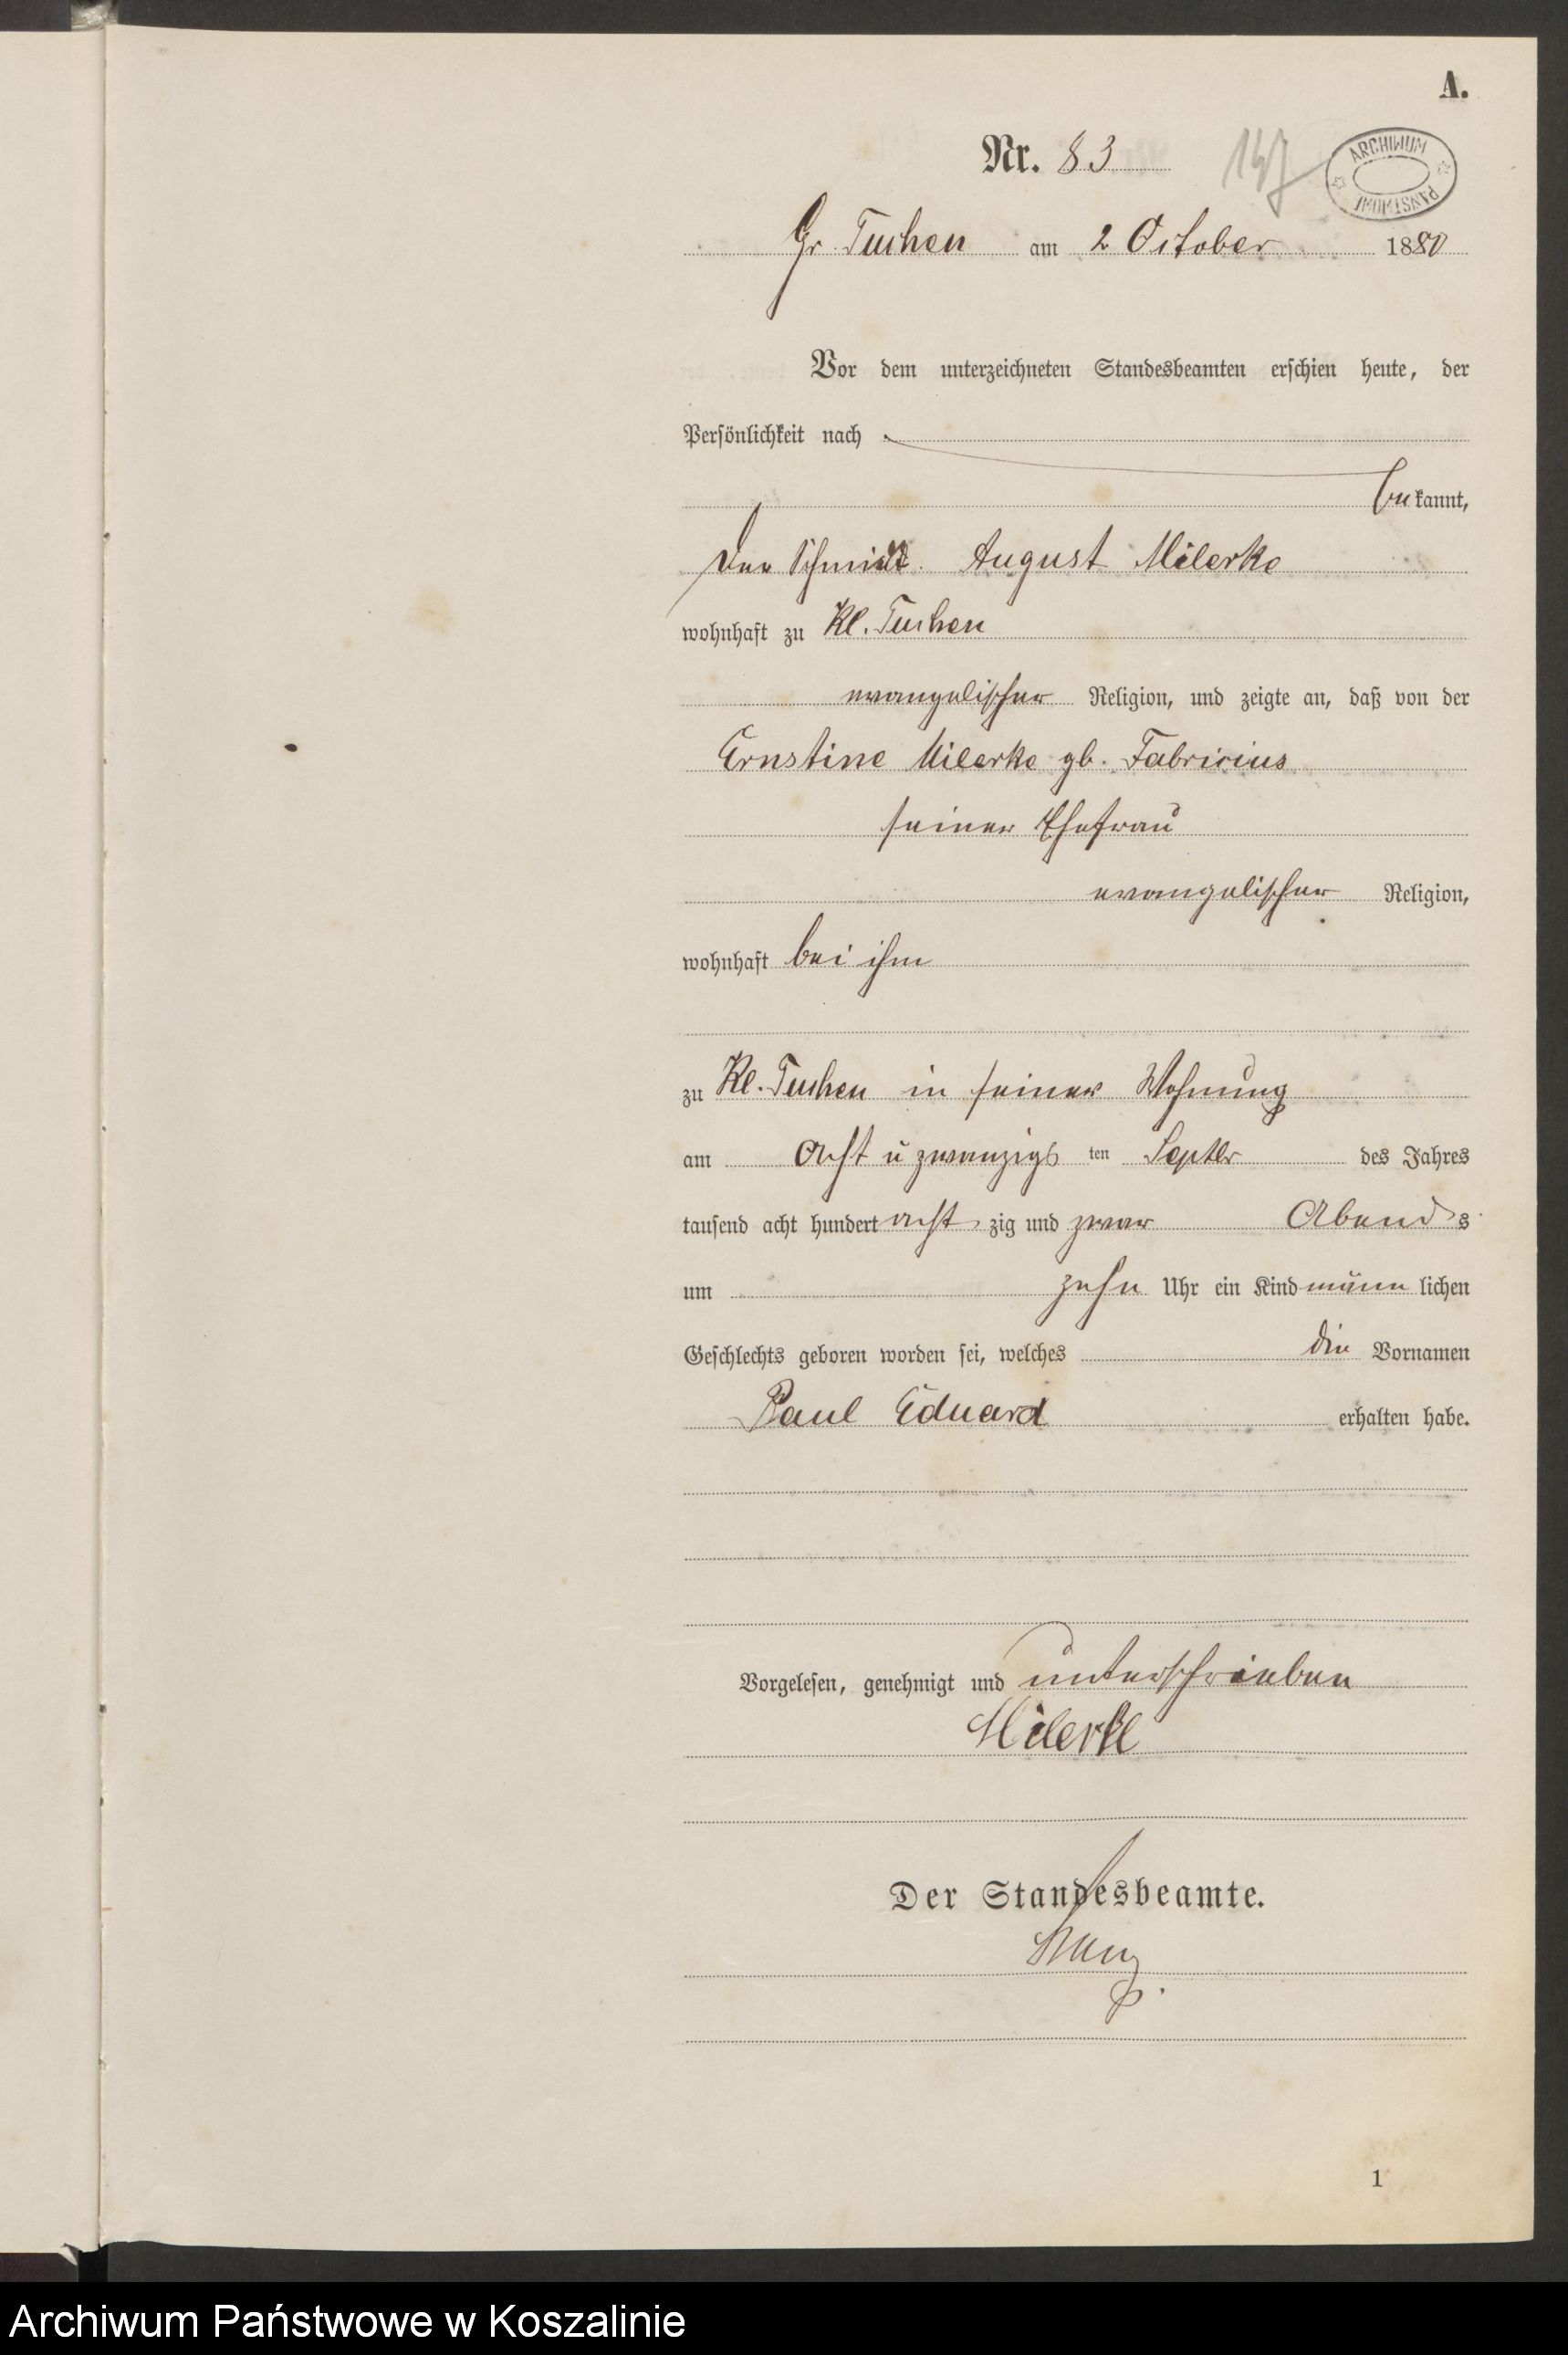 A.
Nr. 83
147
ARCHIWUM PAŃSTWOWE
Gr. Tuchen am 2 October 1880
Vor dem unterzeichneten Standesbeamten erschien heute, der
Persönlichkeit nach
bekannt,
der Schmidt August Milerke
wohnhaft zu Kl. Tuchen
evangelischer Religion, und zeigte an, daß von der
Ernstine Milerke gb. Fabricius
seiner Ehefrau
evangelischer Religion,
wohnhaft bei ihm
zu Kl. Tuchen in seiner Wohnung
am Acht u zwanzigs ten Septbr des Jahres
tausend acht hundert acht zig und zwar Abends
um zehn Uhr ein Kind männ lichen
Geschlechts geboren worden sei, welches die Vornamen
Paul Eduard erhalten habe.
Vorgelesen, genehmigt und unterschrieben
Milerke
Der Standesbeamte.
1
Archiwum Państwowe w Koszalinie